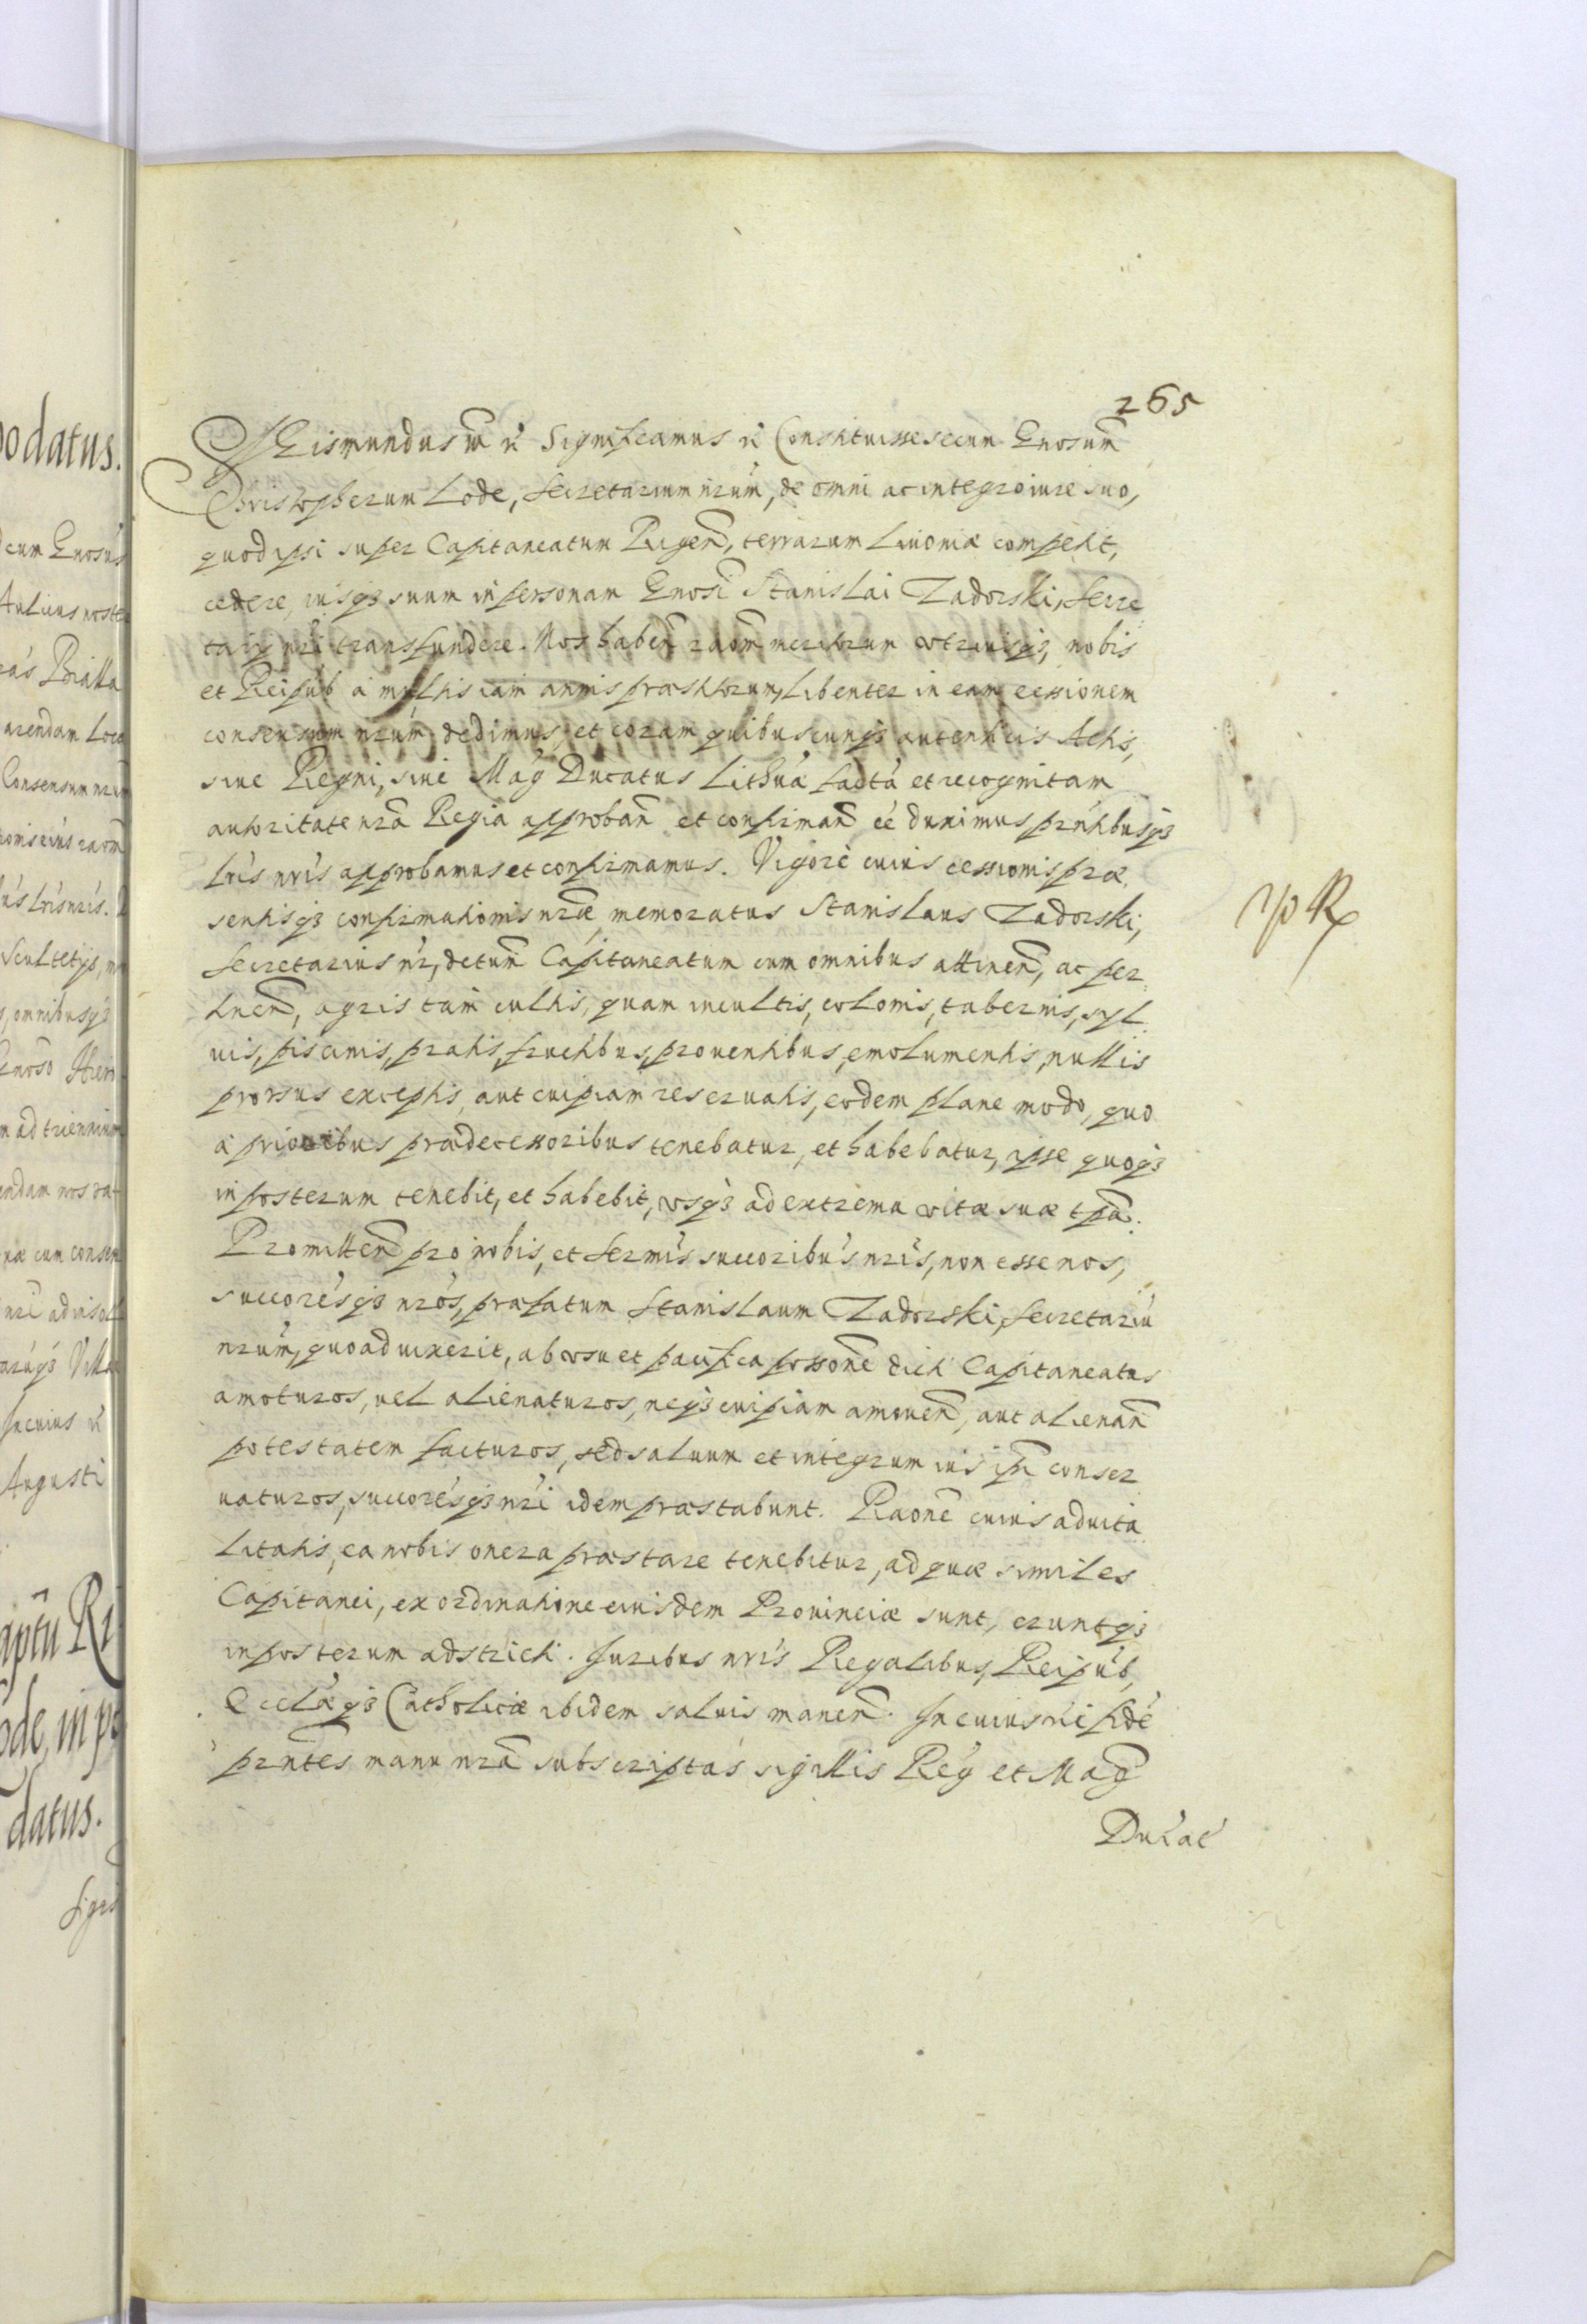 265
SGismundus etc. Significamus etc. Constituisse secum Gnosum
Christopherum Lode, Secretarium nrum, de omni ac integro iure suo,
quod ipsi super Capitaneatum Rugen, terrarum Liuoniæ competit,
cedere, iusq3 suum in personam Gnosi Stanislai Zadorski, Secre
tarij nri transfundere. Nos haben raom meritorum vtriusq3, nobis
et Reipub a multis iam annis præstitorum, libenter in eam cessionem
consensum nrum dedimus, et coram quibuscunq3 autenticis Actis,
siue Regni, siue Mag Ducatus Lithua facta et recognitam
autoritate nra Regia approban et confirman ee duximus prntibusq3
lris nris approbamus et confirmamus. Vigore cuius cessionis præ
sentisq3 confirmationis nræ, memoratus Stanislaus Zadorski,
Secretarius nr, dctum Capitaneatum cum omnibus attinen, ac per
tinen, agris tam cultis, quam incultis, colonis, tabernis, syl
uis, piscinis, pratis, fructibus, prouentibus, emolumentis, nullis
prorsus exceptis, aut cuipiam reseruatis, eodem plane modo, quo
a prioribus prædecessoribus tenebatur, et habebatur, ipse quoq3
in posterum tenebit, et habebit, vsq3 ad extrema vitæ suæ tpa.
Promitten pro nobis, et Sermis succoribus nris, non esse nos,
succoresq3 nros, præfatum Stanislaum Zadorski, Secretariu
nrum, quoad vixerit, ab vsu et pacifica possone dicti Capitaneatus
amoturos, vel alienaturos, neq3 cuipiam amouen, aut alienan
potestatem facturos, sed saluum et integrum ius ipi conser
uaturos, succoresq3 nri idem præstabunt. Raone cuius aduita
litatis, ea nobis onera præstare tenebitur, ad quæ similes
Capitanei, ex ordinatione eiusdem Prouinciæ sunt, eruntq3
in posterum adstricti. Iuribus nris Regalibus, Reipub,
Ecclæq3 Catholicæ ibidem saluis manen. In cuius rei fide
prntes manu nra subscriptas sigillis Reg et Mag
Ducat